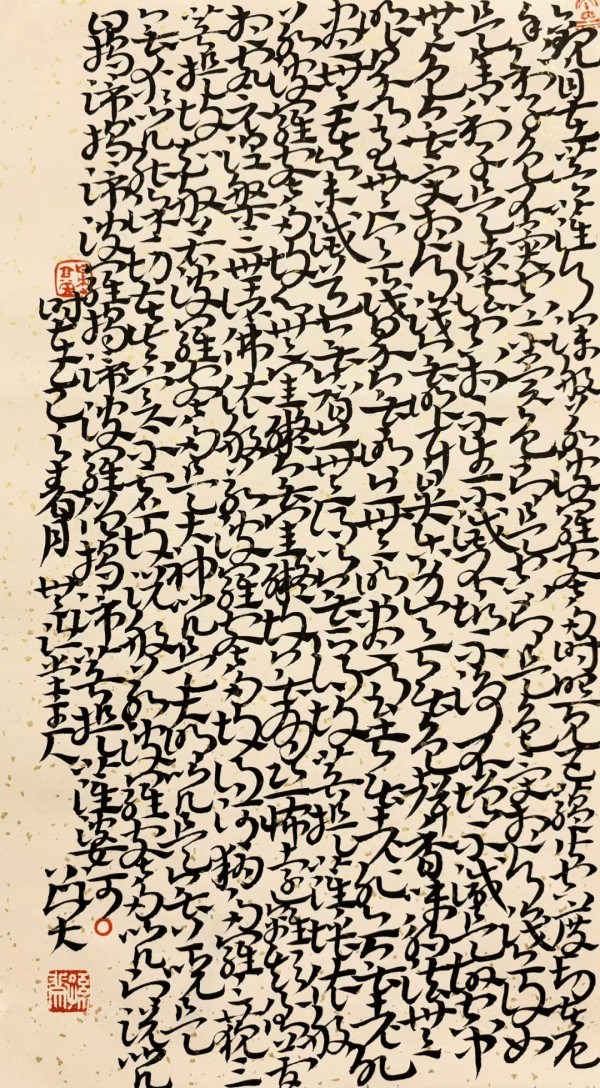 觀自在菩薩行深般若波羅蜜多時照見五蘊皆空度一切苦厄
舍利子色不異空空不異色色即是空空即是色受想行識亦復如
是舍利子是諸法空相不生不滅不垢不淨不增不減是故空中
無色無受想行識無眼耳鼻舌身意無色聲香味觸法無
眼界乃至無意識界無無明亦無無明盡乃至無老死亦無老死
盡無苦集滅道無智亦無得以無所得故菩提薩埵依般
若波羅蜜多故心無罣礙無罣礙故無有恐怖遠離顛倒夢
想究竟涅槃三世諸佛依般若波羅蜜多故得阿耨多羅三藐三
菩提故知般若波羅蜜多是大神咒是大明咒是無上咒是
無等等咒能除一切苦真實不虛故說般若波羅蜜多咒即說咒
曰揭諦揭諦波羅揭諦波羅僧揭諦菩提薩婆訶
時在春月